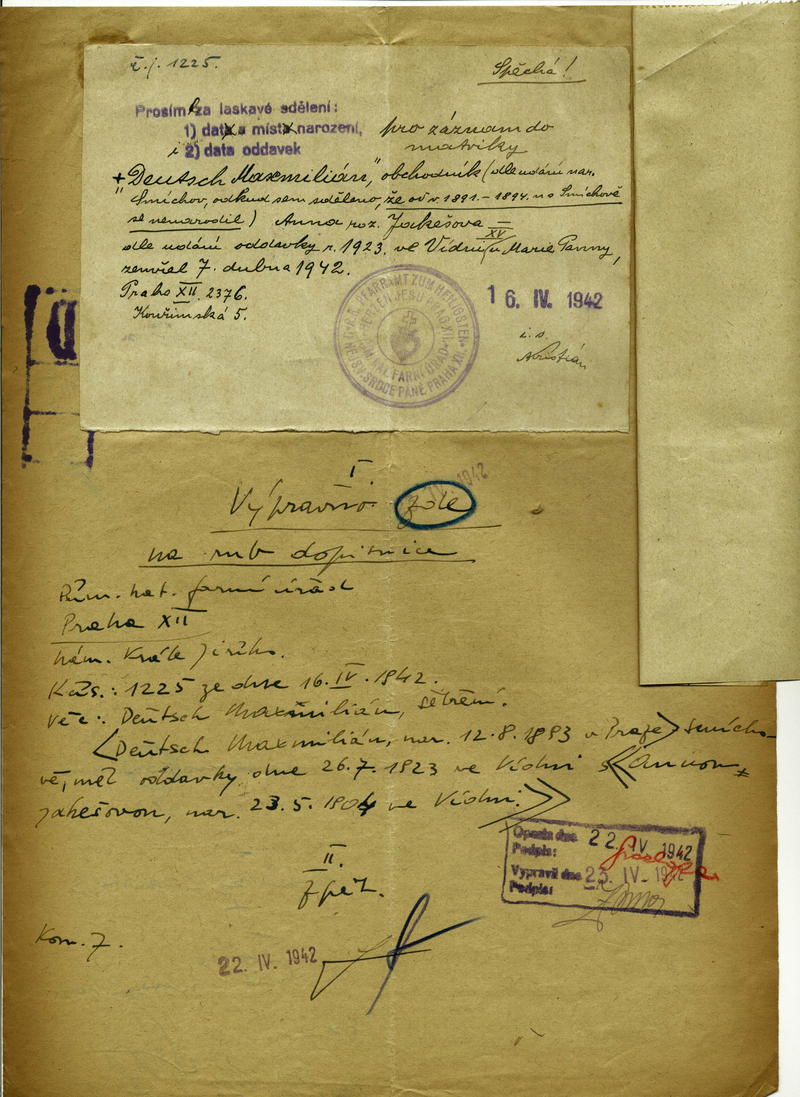 č.j. 1225.
Spěchá!
Prosím za laskavé sdělení:
1) data a místa narození, pro záznam do
i 2) data oddavek matriky
+ "Deutsch Maxmilián," obchodník (dle udání nar.
Smíchov, odkud sem sděleno, že od r. 1891. - 1894. na Smíchově
se nenarodil) Anna roz. Jakešova
dle udání oddavky r. 1923. ve Vídni XV u Marie Panny,
zemřel 7. dubna 1942.
Praha XII. 2376.
Kouřimská 5.
PFARRAMT ZUM HEILIGSTEN HERZEN JESU PRAG XII.
ŘÍM. KAT. FARNÍ ÚŘAD
NEJSV. SRDCE PÁNĚ PRAHA XII.
16. IV. 1942
i. s.
I.
IV. 1942
Vypraviti zde
na rub dopisnice
Řím. kat. farní úřad
Praha XII
nám. Krále Jiřího.
K čís.: 1225 ze dne 16. IV. 1942.
Věc: Deutsch Maxmilián, šetření.
Deutsch Maxmilián, nar. 12.8.1893 v Praze Smícho-
vě, měl oddavky dne 26.7.1923 ve Vídni s Annou
Jakešovou, nar. 23.5.1904 ve Vídni.
Opsáno dne 22. IV 1942
Podpis:
Vypravil dne 23. IV. 1942
Podpis:
II.
Zpět.
Kom. 7.
22. IV. 1942